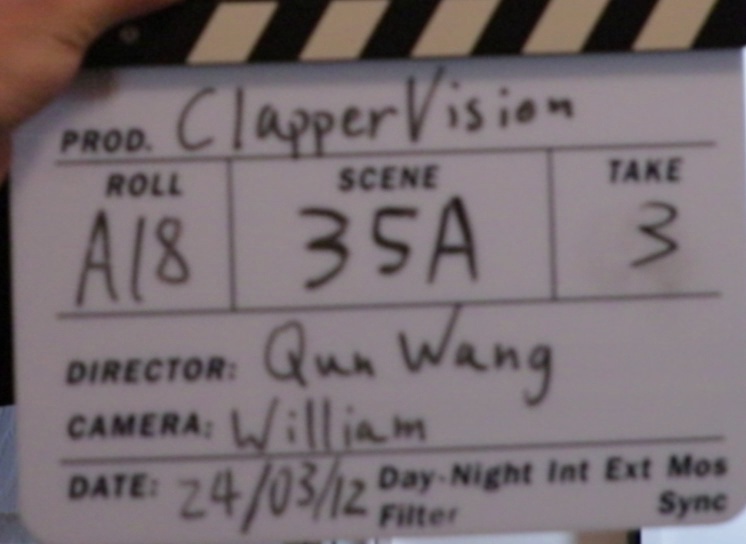 PROD. ClapperVision
ROLL SCENE TAKE
A18 35A 3
DIRECTOR: Qun Wang
CAMERA: William
DATE: 24/03/12 Day-Night Int Ext Mos
Filter Sync